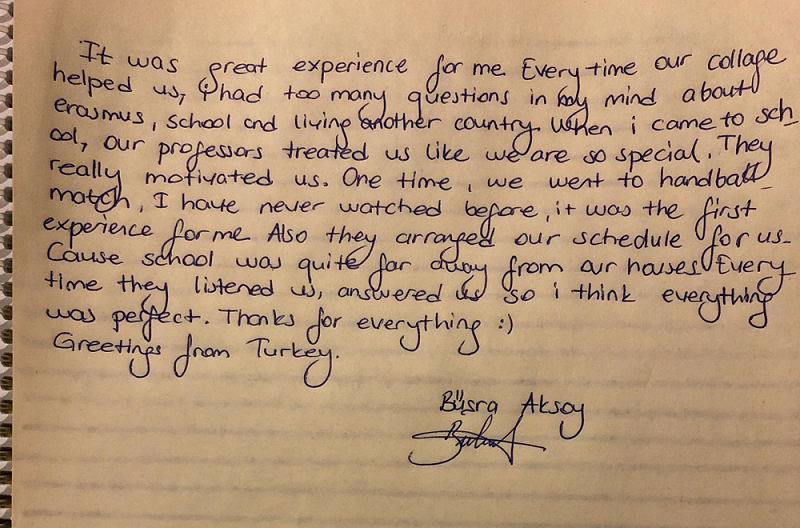 It was great experience for me. Every time our collage
helped us, I had too many questions in my mind about
erasmus, school and living another country. When i came to sch_
ool, our professors treated us like we are so special. They
really motivated us. One time, we went to handball_
match, I have never watched before, it was the first
experience for me. Also they arranged our schedule for us_
Cause school was quite far away from our houses. Every_
time they listened us, answered us so i think everything
was perfect. Thanks for everything :)
Greetings from Turkey.
Büşra Aksoy